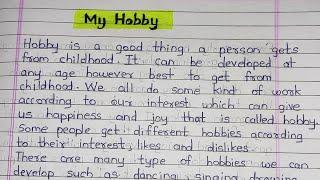 My Hobby
Hobby is a good thing a person gets
from childhood. It can be developed at
any age however best to get from
childhood. We all do some kind of work
according to our interest which can give
us happiness and joy that is called hobby.
Some people get different hobbies according
to their interest, likes and dislikes.
There are many type of hobbies we can
develop such as dancing, singing, drawing